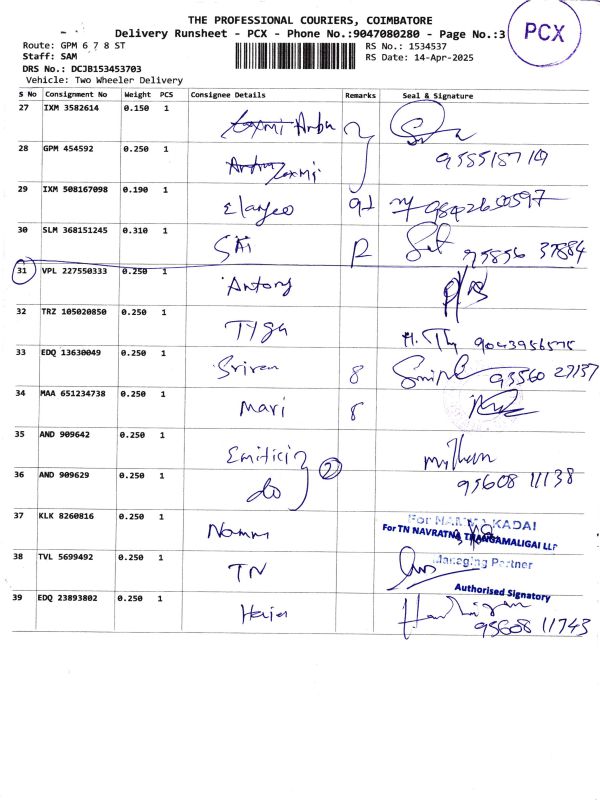 THE PROFESSIONAL COURIERS, COIMBATORE
Delivery Runsheet - PCX - Phone No.:9047080280 - Page No.:3
PCX
Route: GPM 6 7 8 ST
RS No.: 1534537
Staff: SAM
RS Date: 14-Apr-2025
DRS No.: DCJB153453703
Vehicle: Two Wheeler Delivery
S No Consignment No Weight PCS Consignee Details Remarks Seal & Signature
27 IXM 3582614 0.150 1
28 GPM 454592 0.250 1
29 IXM 508167098 0.190 1
30 SLM 368151245 0.310 1 SAI
31 VPL 227550333 0.250 1 Antony
32 TRZ 105020850 0.250 1
33 EDQ 13630049 0.250 1 Sriram 8
34 MAA 651234738 0.250 1 Mari 8
35 AND 909642 0.250 1
36 AND 909629 0.250 1 do 2
95608 11138
37 KLK 8260816 0.250 1
For NAMMA KADAI
For TN NAVRATNA THANGAMALIGAI LLP
38 TVL 5699492 0.250 1 TN
Managing Partner
Authorised Signatory
39 EDQ 23893802 0.250 1
95608 11743